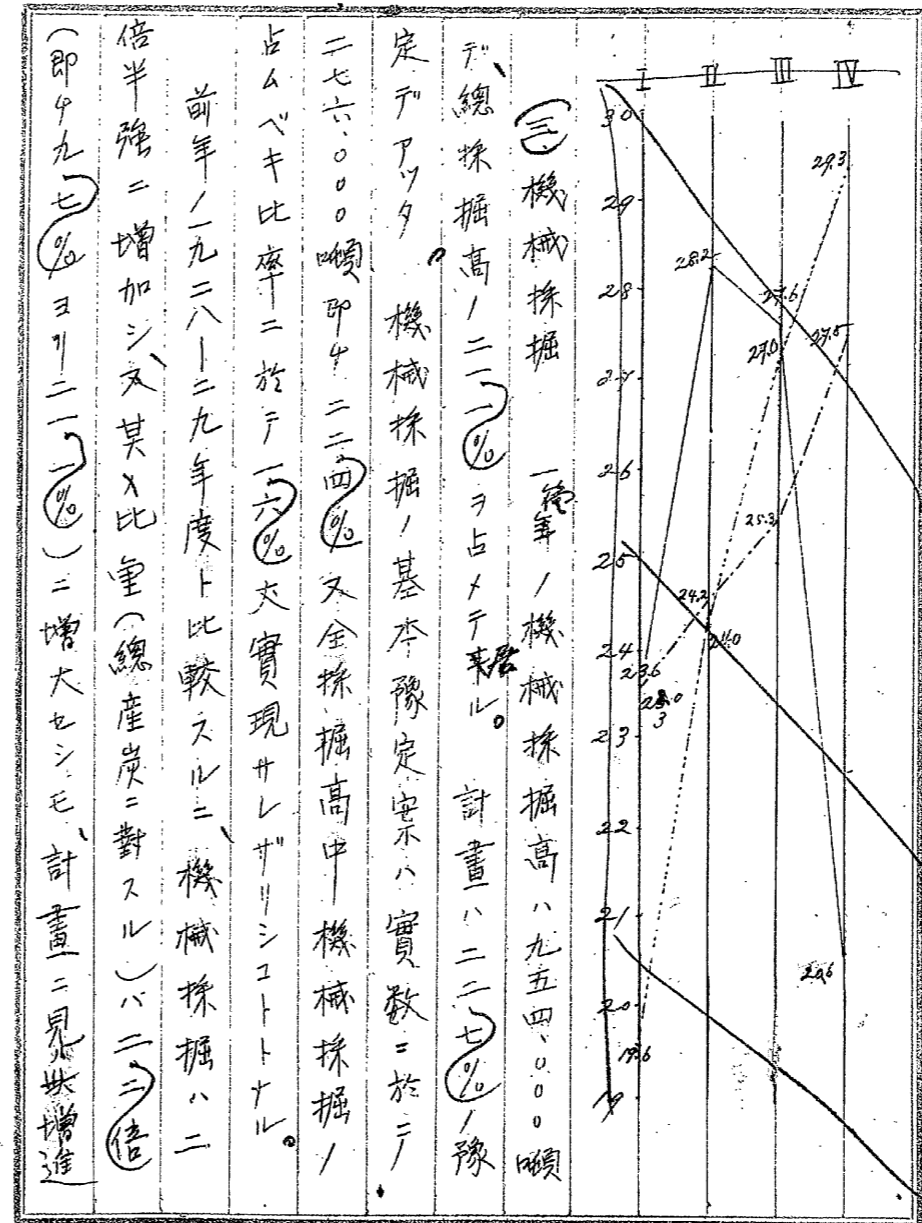 I II III IV
30
29
28
27
26
25
24
23
22
21
20
19
29.3
28.2
27.6
27.0
27.5
25.3
24.2
24.0
23.6
20.6
19.6
(三)機械採掘 一ヶ年ノ機械採掘高ハ九五四、〇〇〇噸
デ、總採掘高ノ二一、一%ヲ占メテ居ル。計畫ハ二二、七%ノ豫
定デアツタ。機械採掘ノ基本豫定案ハ實数ニ於テ
二七六、〇〇〇噸即チ二二、四%又全採掘高中機械採掘ノ
占ムベキ比率ニ於テ一、六%丈實現サレザリシコトトナル。
前年ノ一九二八—二九年度ト比較スルニ、機械採掘ハ二
倍半強ニ増加シ、又其ノ比重(總産炭ニ對スル)ハ二、二倍
(即チ九、七%ヨリ二一、一%)ニ増大セシモ、計畫ニ見ル増進